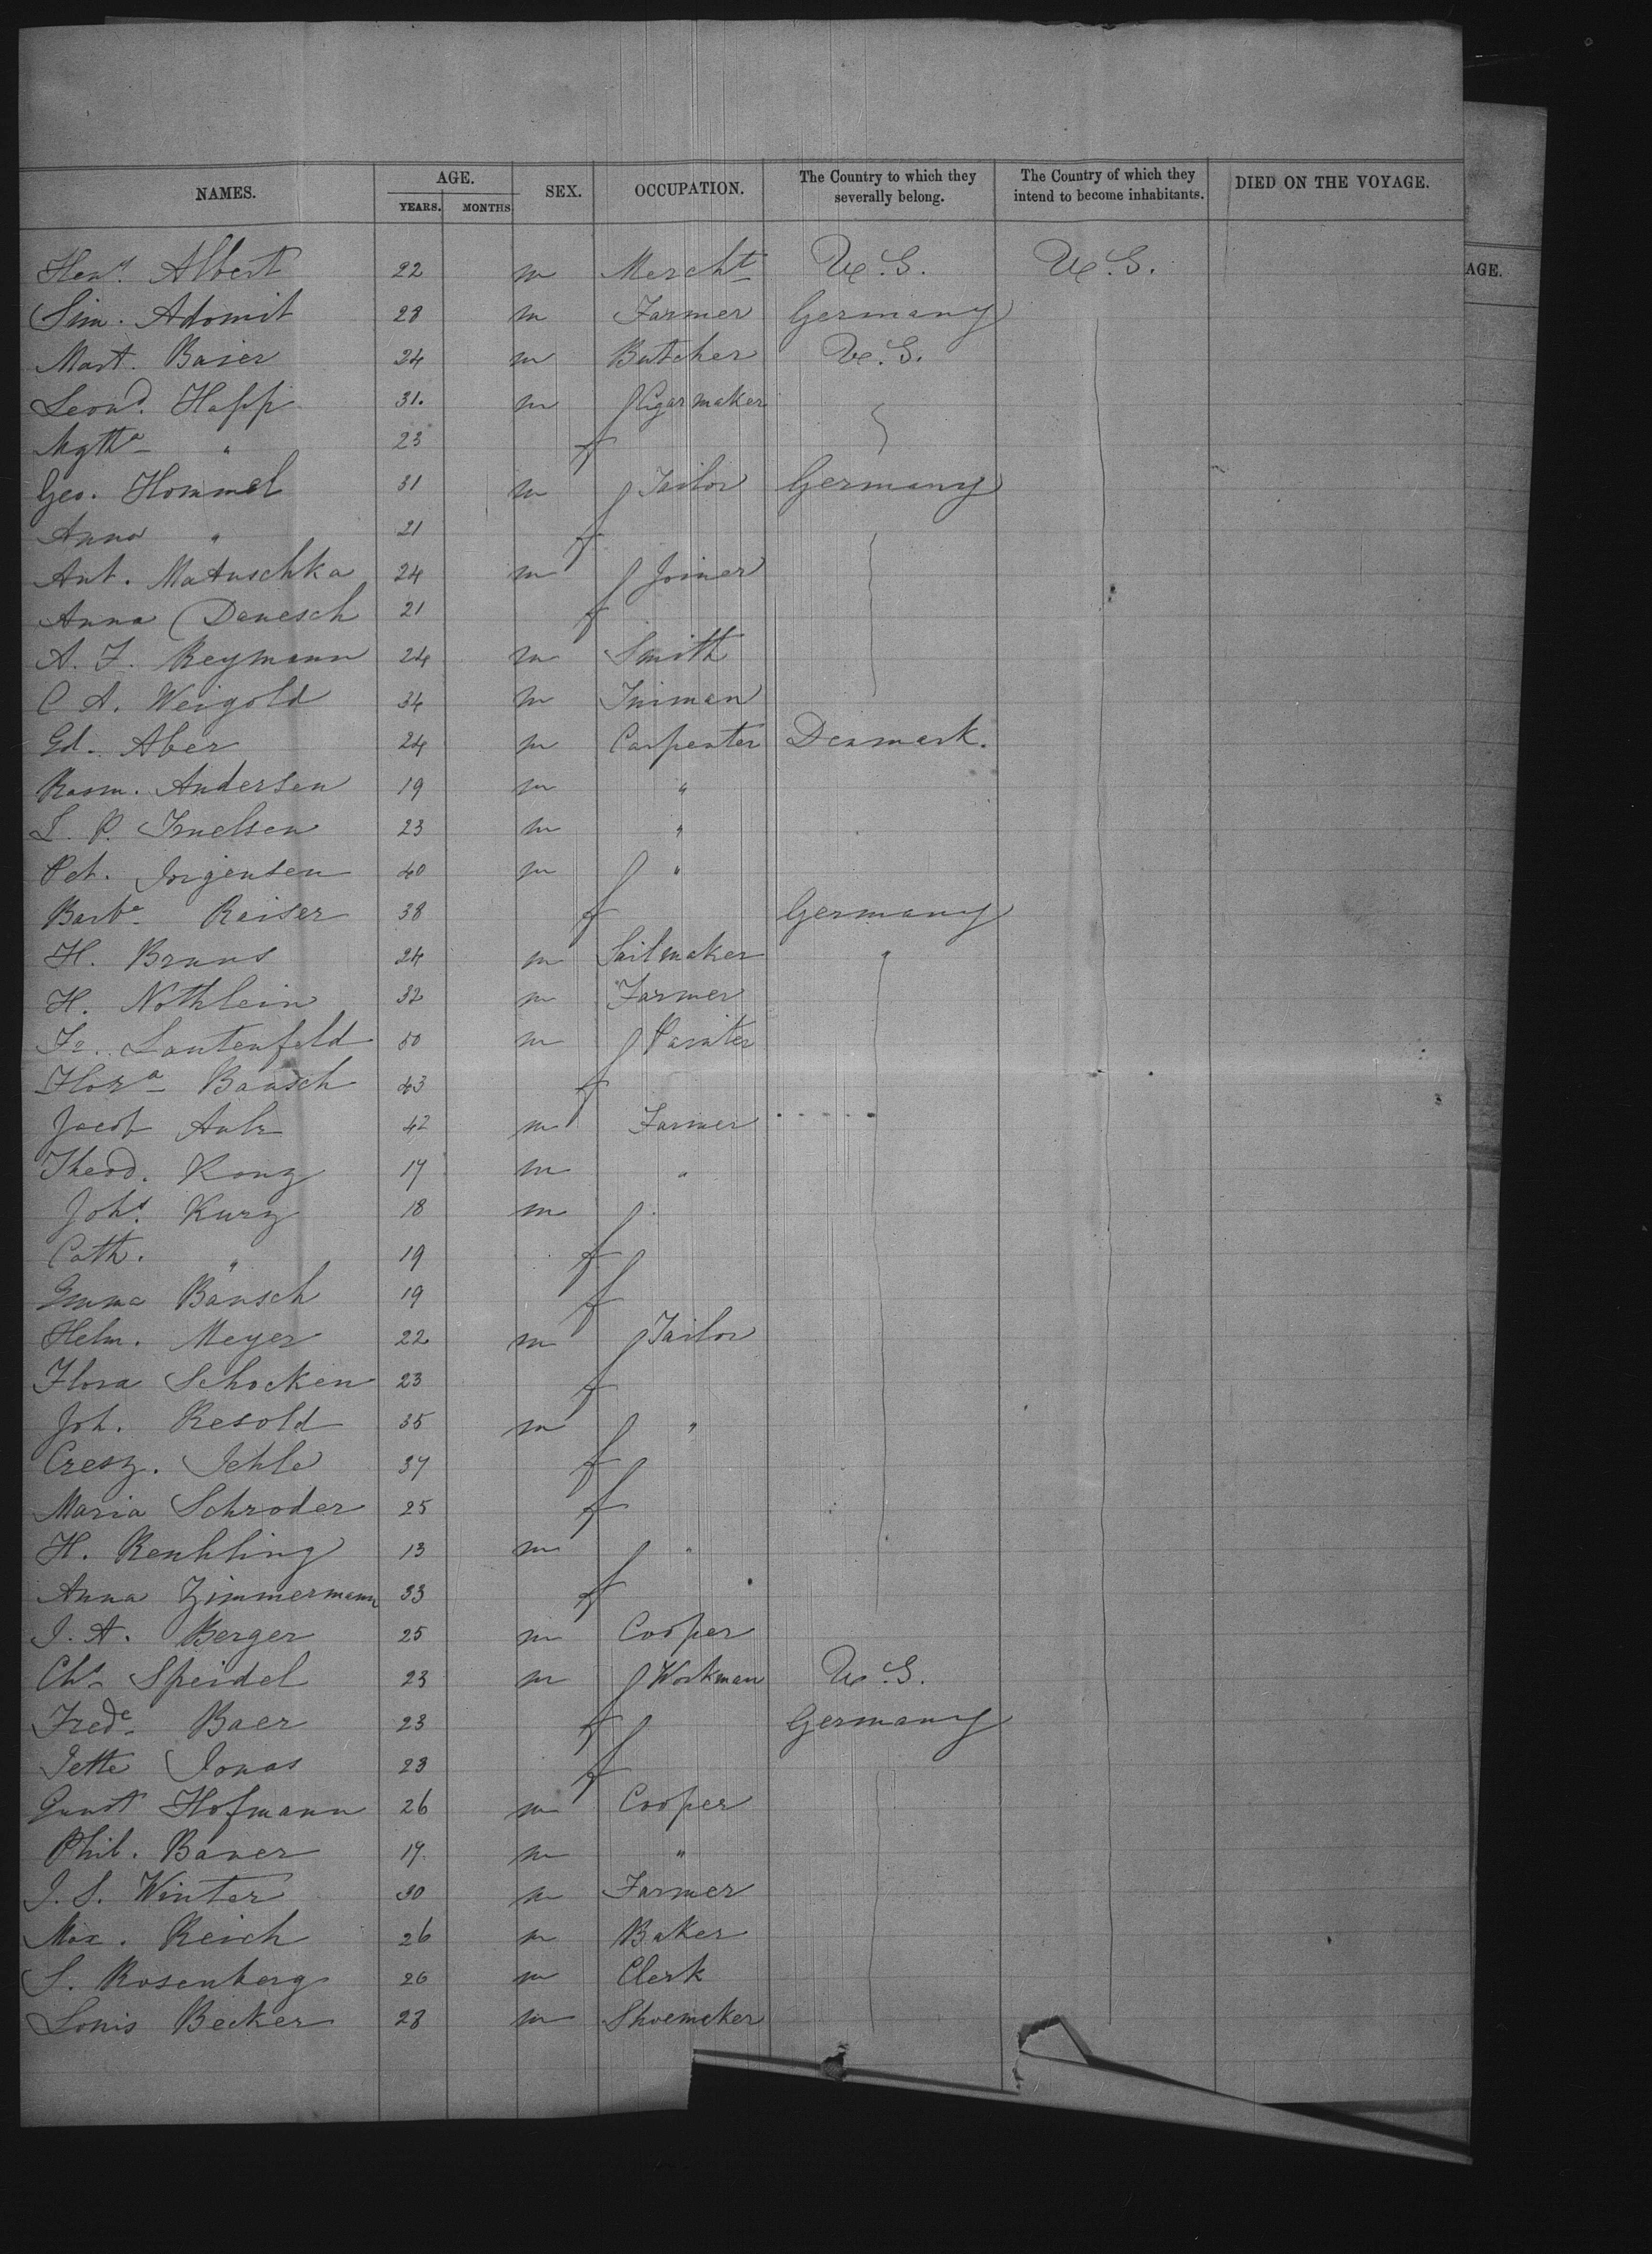 NAMES. AGE. SEX. OCCUPATION. The Country to which they severally belong. The Country of which they intend to become inhabitants. DIED ON THE VOYAGE.
YEARS. MONTHS
AGE.
Heny. Albert 22 m Mercht U.S. U.S.
Sim. Adomit 28 m Farmer Germany
Mart. Baier 24 m Butcher U.S.
Leond. Happ 31. m Cigarmaker
Mgtha " 23 f
Geo. Hommel 31 m Tailor Germany
Anna " 21 f
Ant. Matuschka 24 m Joiner
Anna Danesch 21 f
A. F. Reymann 24 m Smith
C A. Weigold 34 m
Ed. Aber 24 m Carpenter Denmark.
Rasm. Andersen 19 m "
L. P. 23 m "
Pet. Jorgensen 40 m "
Barba Reiser 38 f Germany
H. Bruns 24 m Sailmaker "
H. Nothlein 32 m Farmer
Fr. Lautenfeld 50 m Painter
Flora Bausch 43 f
Jacob 42 m Farmer
Theod. Konz 17 m "
Johs. Kurz 18 m
Cath. " 19 f
Emma Bausch 19 f
Helm. Meyer 22 m Tailor
Flora Schocken 23 f
Joh. Resold 35 m "
Cresz. Jehle 37 f
Maria Schroder 25 f
H. Reuhling 13 m "
Anna Zimmermann 33 f
J. A. Berger 25 m Cooper
Chs Speidel 23 m Workman U.S.
Frede Baer 23 f Germany
Jette Jonas 23 f
Hofmann 26 m Cooper
Phil. Bauer 17. m "
J. S. Winter 30 m Farmer
Max. Reich 26 m Baker
S. Rosenberg 26 m Clerk
Louis Becker 28 m Shoemaker